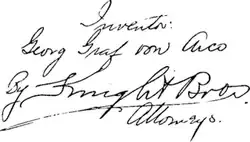 Inventor:
Georg Graf von Arco
By Knight Bros.
Attorneys.